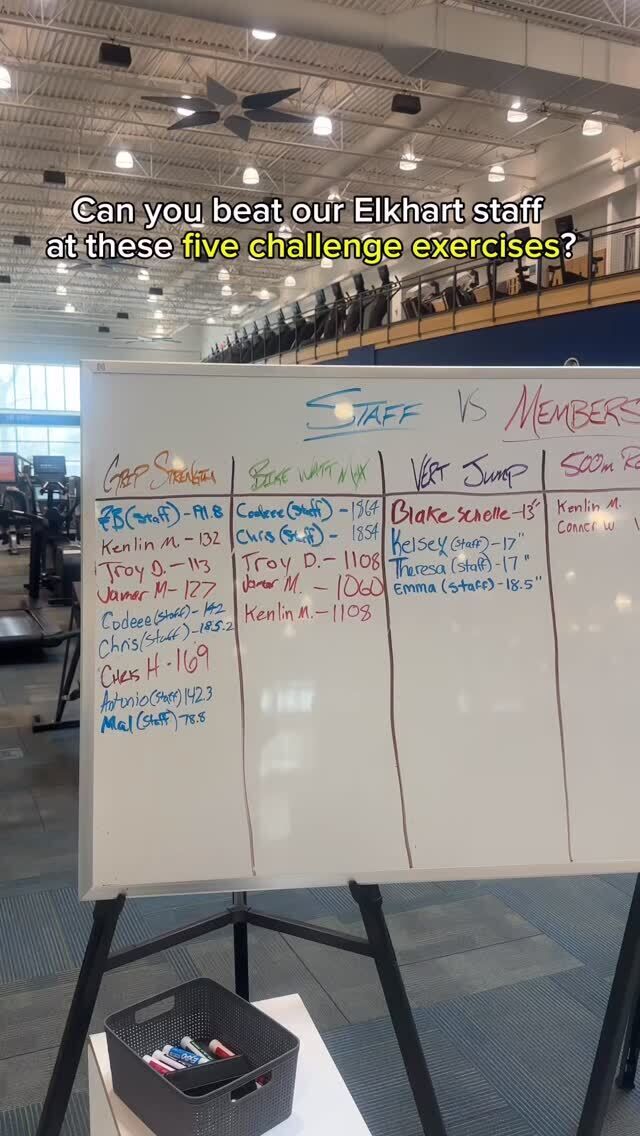 Can you beat our Elkhart staff
at these five challenge exercises?
STAFF VS MEMBERS
GRIP STRENGTH
(Staff) - 191.8
Kenlin M. - 132
Troy D. - 113
Jamar M - 127
Codeee (Staff) - 142
Chris (Staff) - 185.2
CHRIS H - 169
Antonio (Staff) 142.3
Mal (Staff) - 78.8
BIKE WATT MAX
Codeee (Staff) - 1964
Chris (Staff) - 1854
Troy D. - 1108
Jamar M. - 1060
Kenlin M. - 1108
VERT JUMP
Blake Schelle - 13"
Kelsey (Staff) - 17"
Theresa (Staff) - 17"
Emma (Staff) - 18.5"
500m
Kenlin M.
Conner W